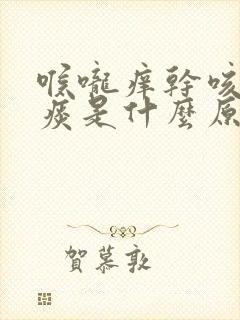 喉嚨痒幹咳
痰是什麼原
賀慕敦